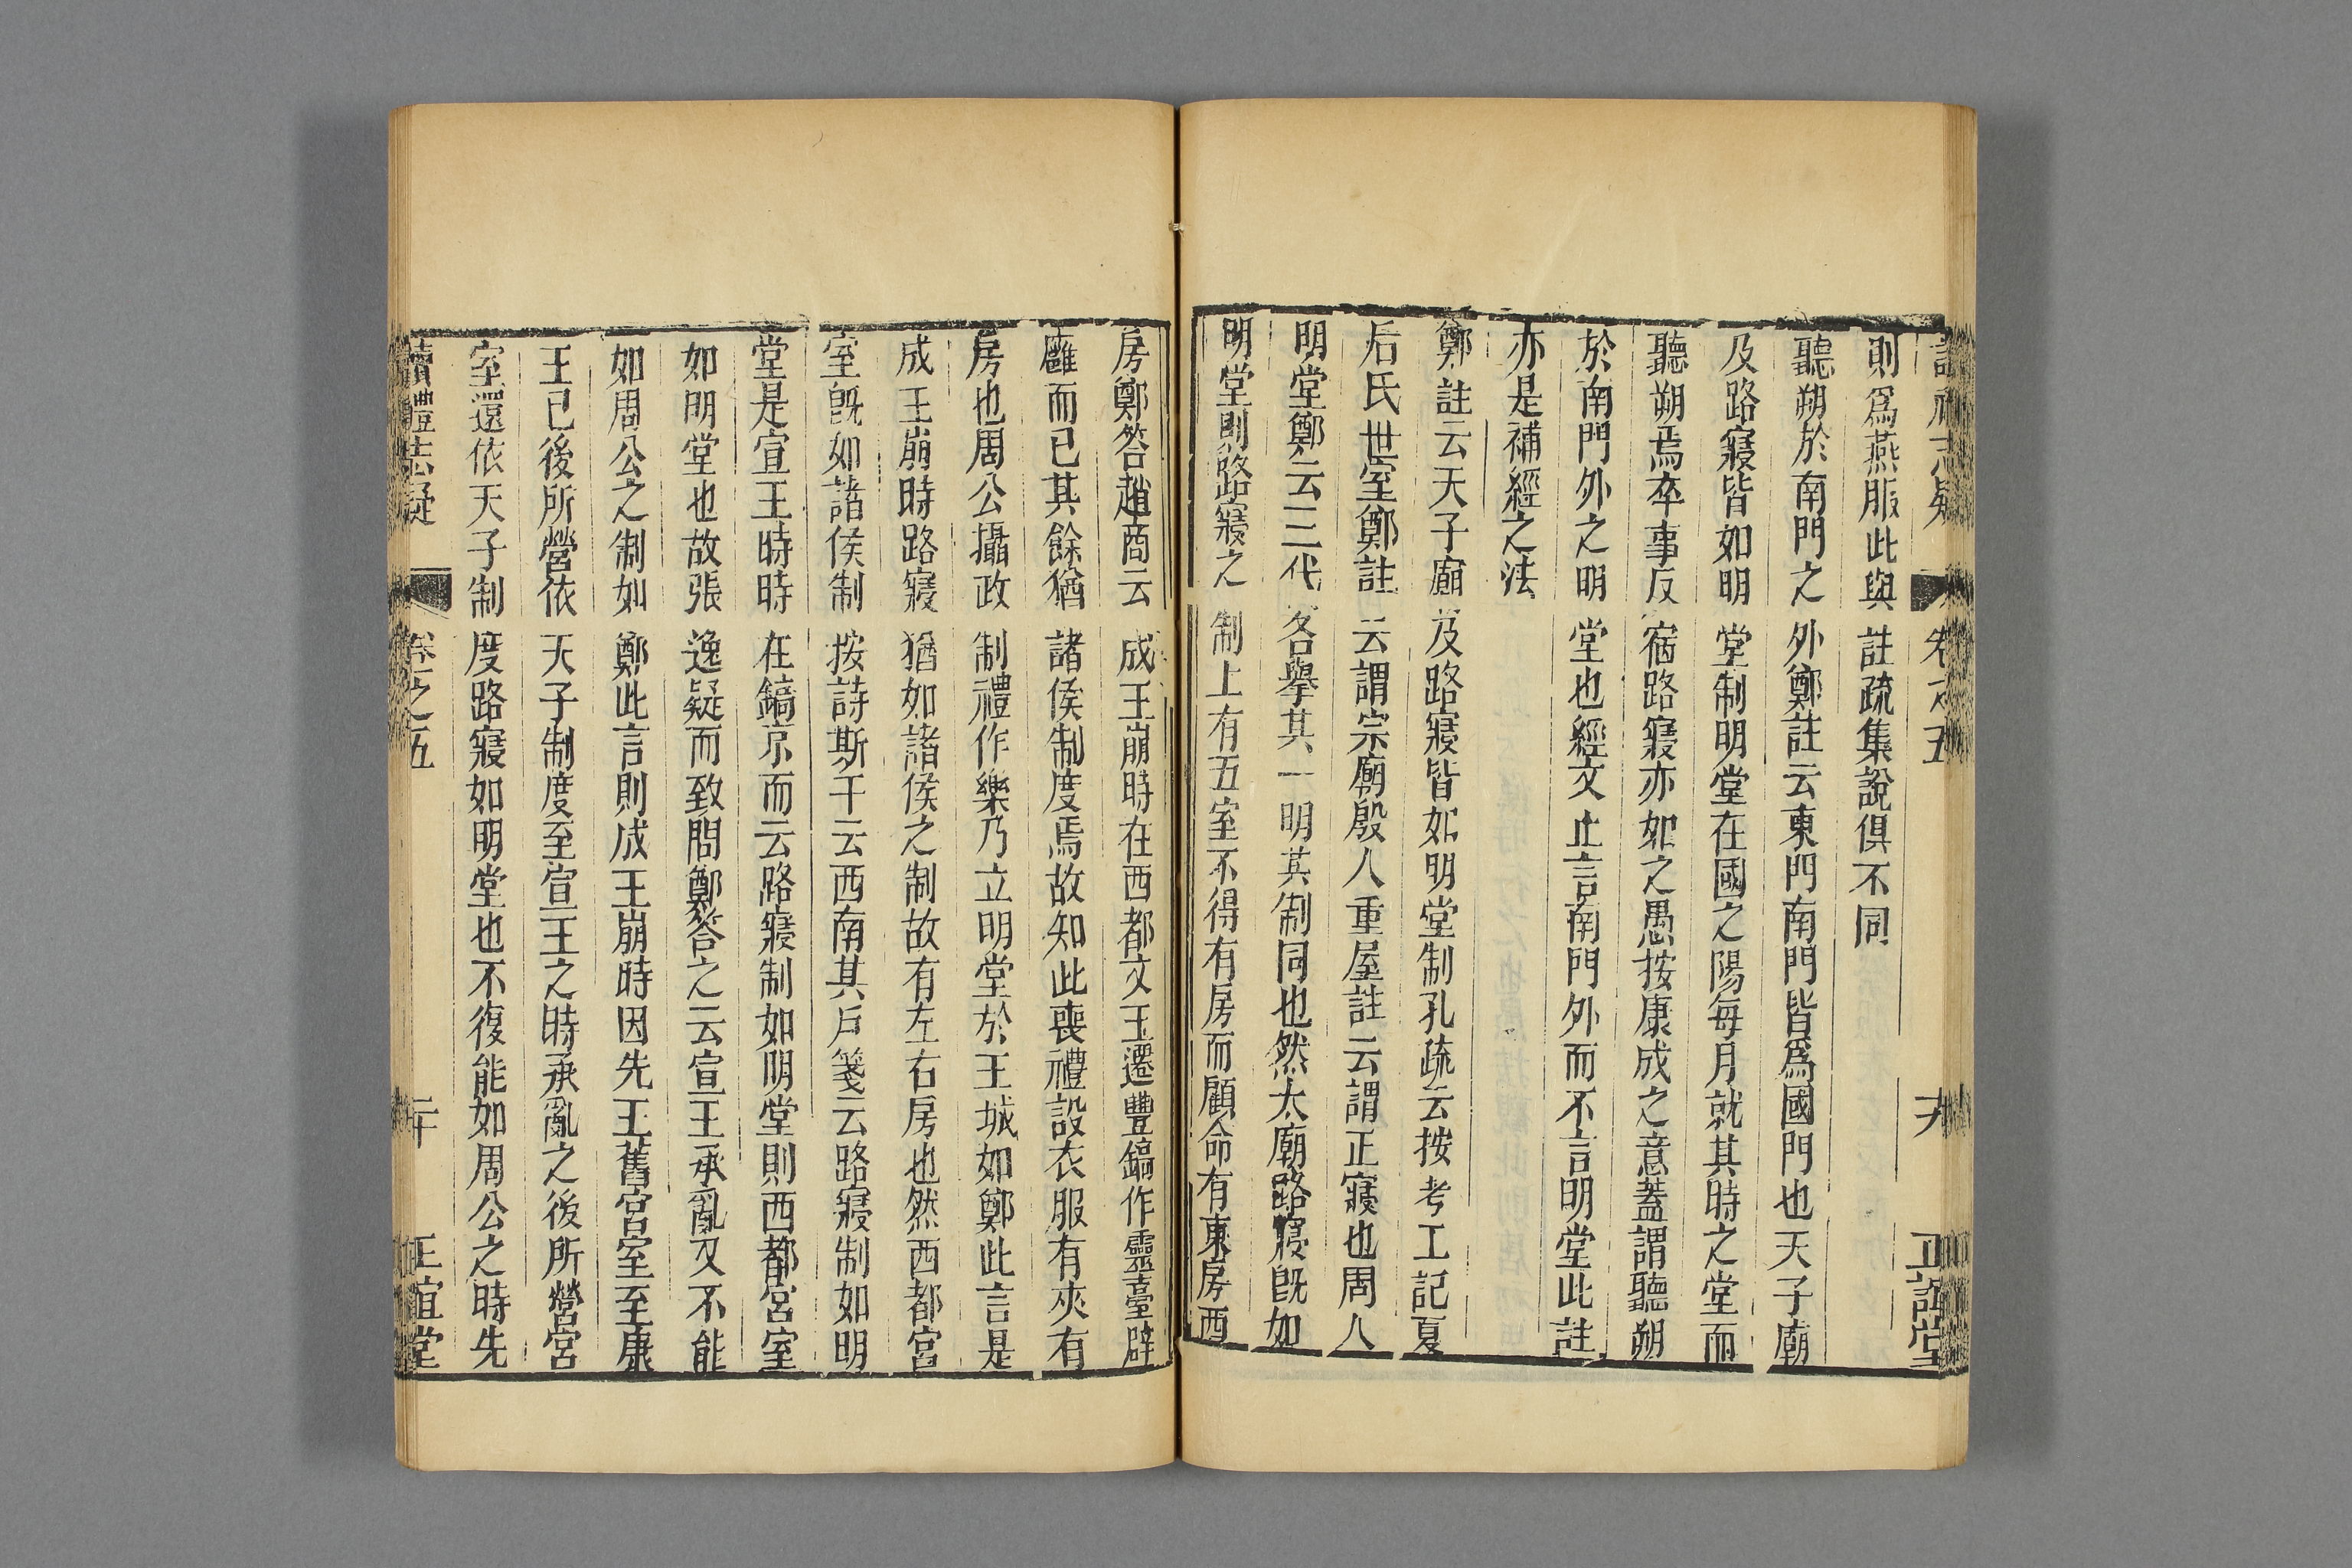 讀禮志疑 卷之五 十九 正誼堂
則爲燕服此與註疏集說俱不同
聽朔於南門之外鄭註云東門南門皆爲國門也天子廟
及路寢皆如明堂制明堂在國之陽每月就其時之堂而
聽朔焉卒事反宿路寢亦如之愚按康成之意蓋謂聽朔
於南門外之明堂也經文止言南門外而不言明堂此註
亦是補經之法
鄭註云天子廟及路寢皆如明堂制孔疏云按考工記夏
后氏世室鄭註云謂宗廟殷人重屋註云謂正寢也周人
明堂鄭云三代各舉其一明其制同也然太廟路寢旣如
明堂則路寢之制上有五室不得有房而顧命有東房西
房鄭答趙商云成王崩時在西都文王遷豐鎬作靈臺辟
廱而已其餘猶諸侯制度焉故知此喪禮設衣服有夾有
房也周公攝政制禮作樂乃立明堂於王城如鄭此言是
成王崩時路寢猶如諸侯之制故有左右房也然西都宮
室旣如諸侯制按詩斯干云西南其戶箋云路寢制如明
堂是宣王時時在鎬京而云路寢制如明堂則西都宮室
如明堂也故張逸疑而致問鄭答之云宣王承亂又不能
如周公之制如鄭此言則成王崩時因先王舊宮室至康
王已後所營依天子制度至宣王之時承亂之後所營宮
室還依天子制度路寢如明堂也不復能如周公之時先
讀禮志疑 卷之五 二十 正誼堂